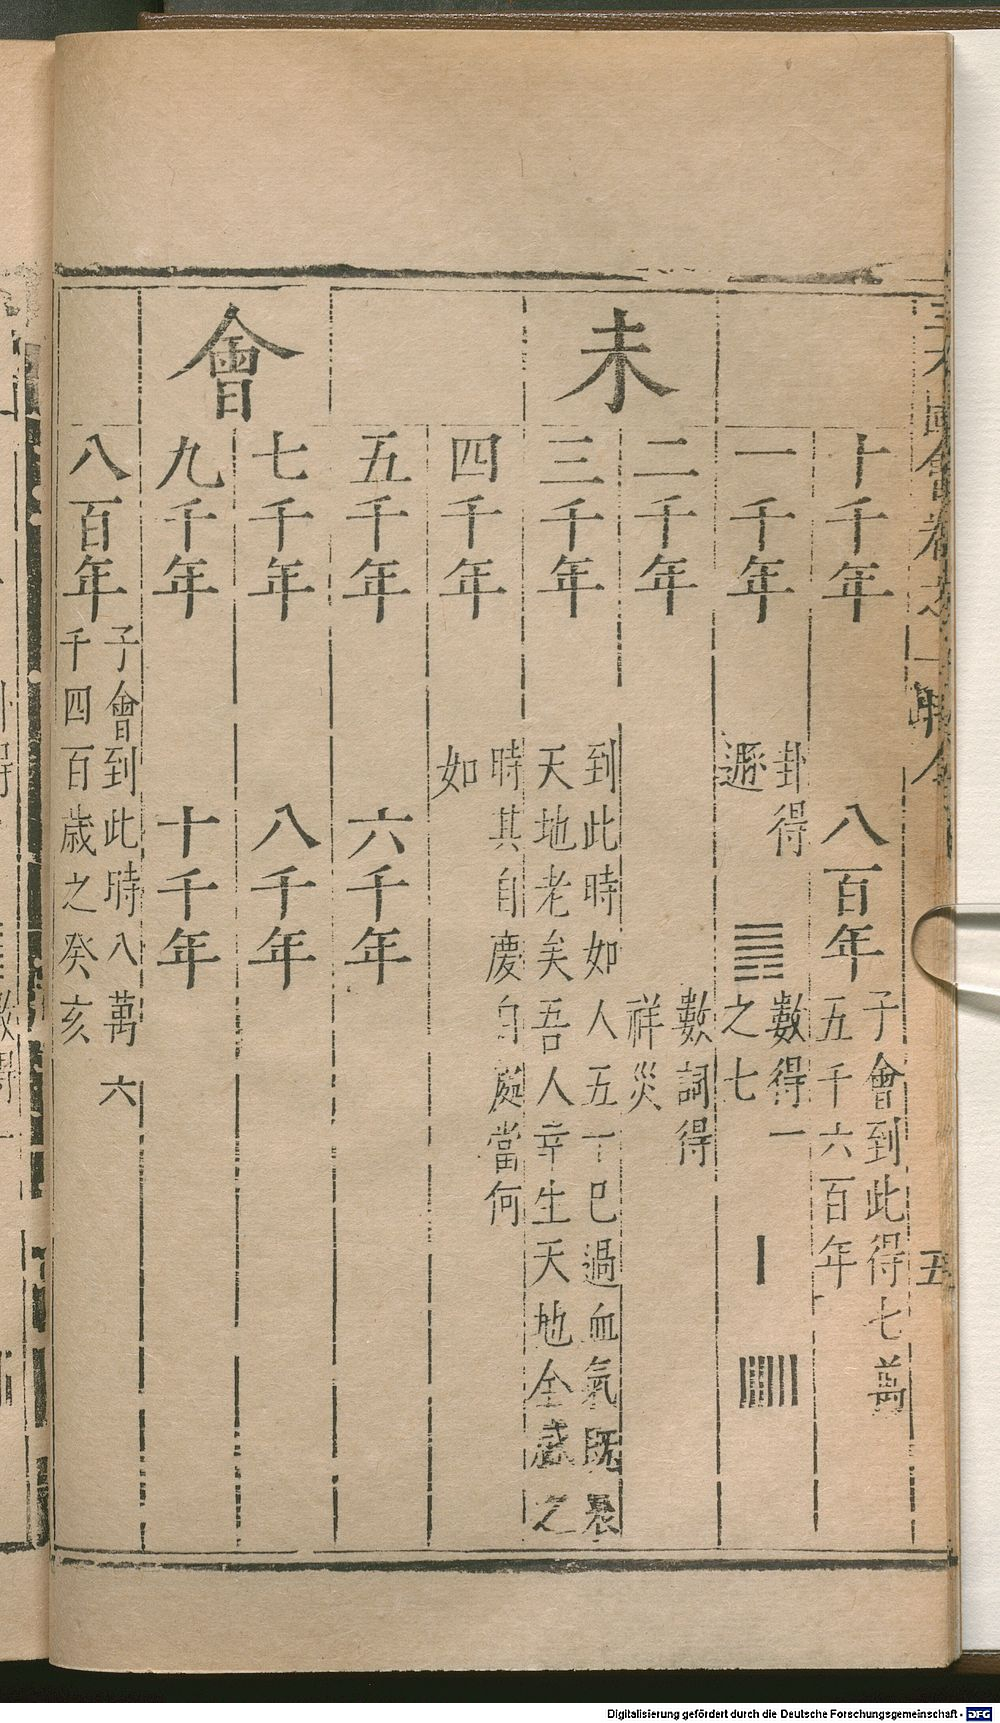 會卷之
五
十千年　八百年
子會到此得七萬
五千六百年
未
一千年
卦得
遯
䷠
數得一
之七
二千年
數詞得
祥災
三千年
到此時如人五十巳過血氣既衰
天地老矣吾人幸生天地全盛之
四千年
時其自慶自處當何
如
五千年　六千年
會
七千年　八千年
九千年　十千年
八百年
子會到此時八萬六
千四百歲之癸亥
Digitalisierung gefördert durch die Deutsche Forschungsgemeinschaft - DFG